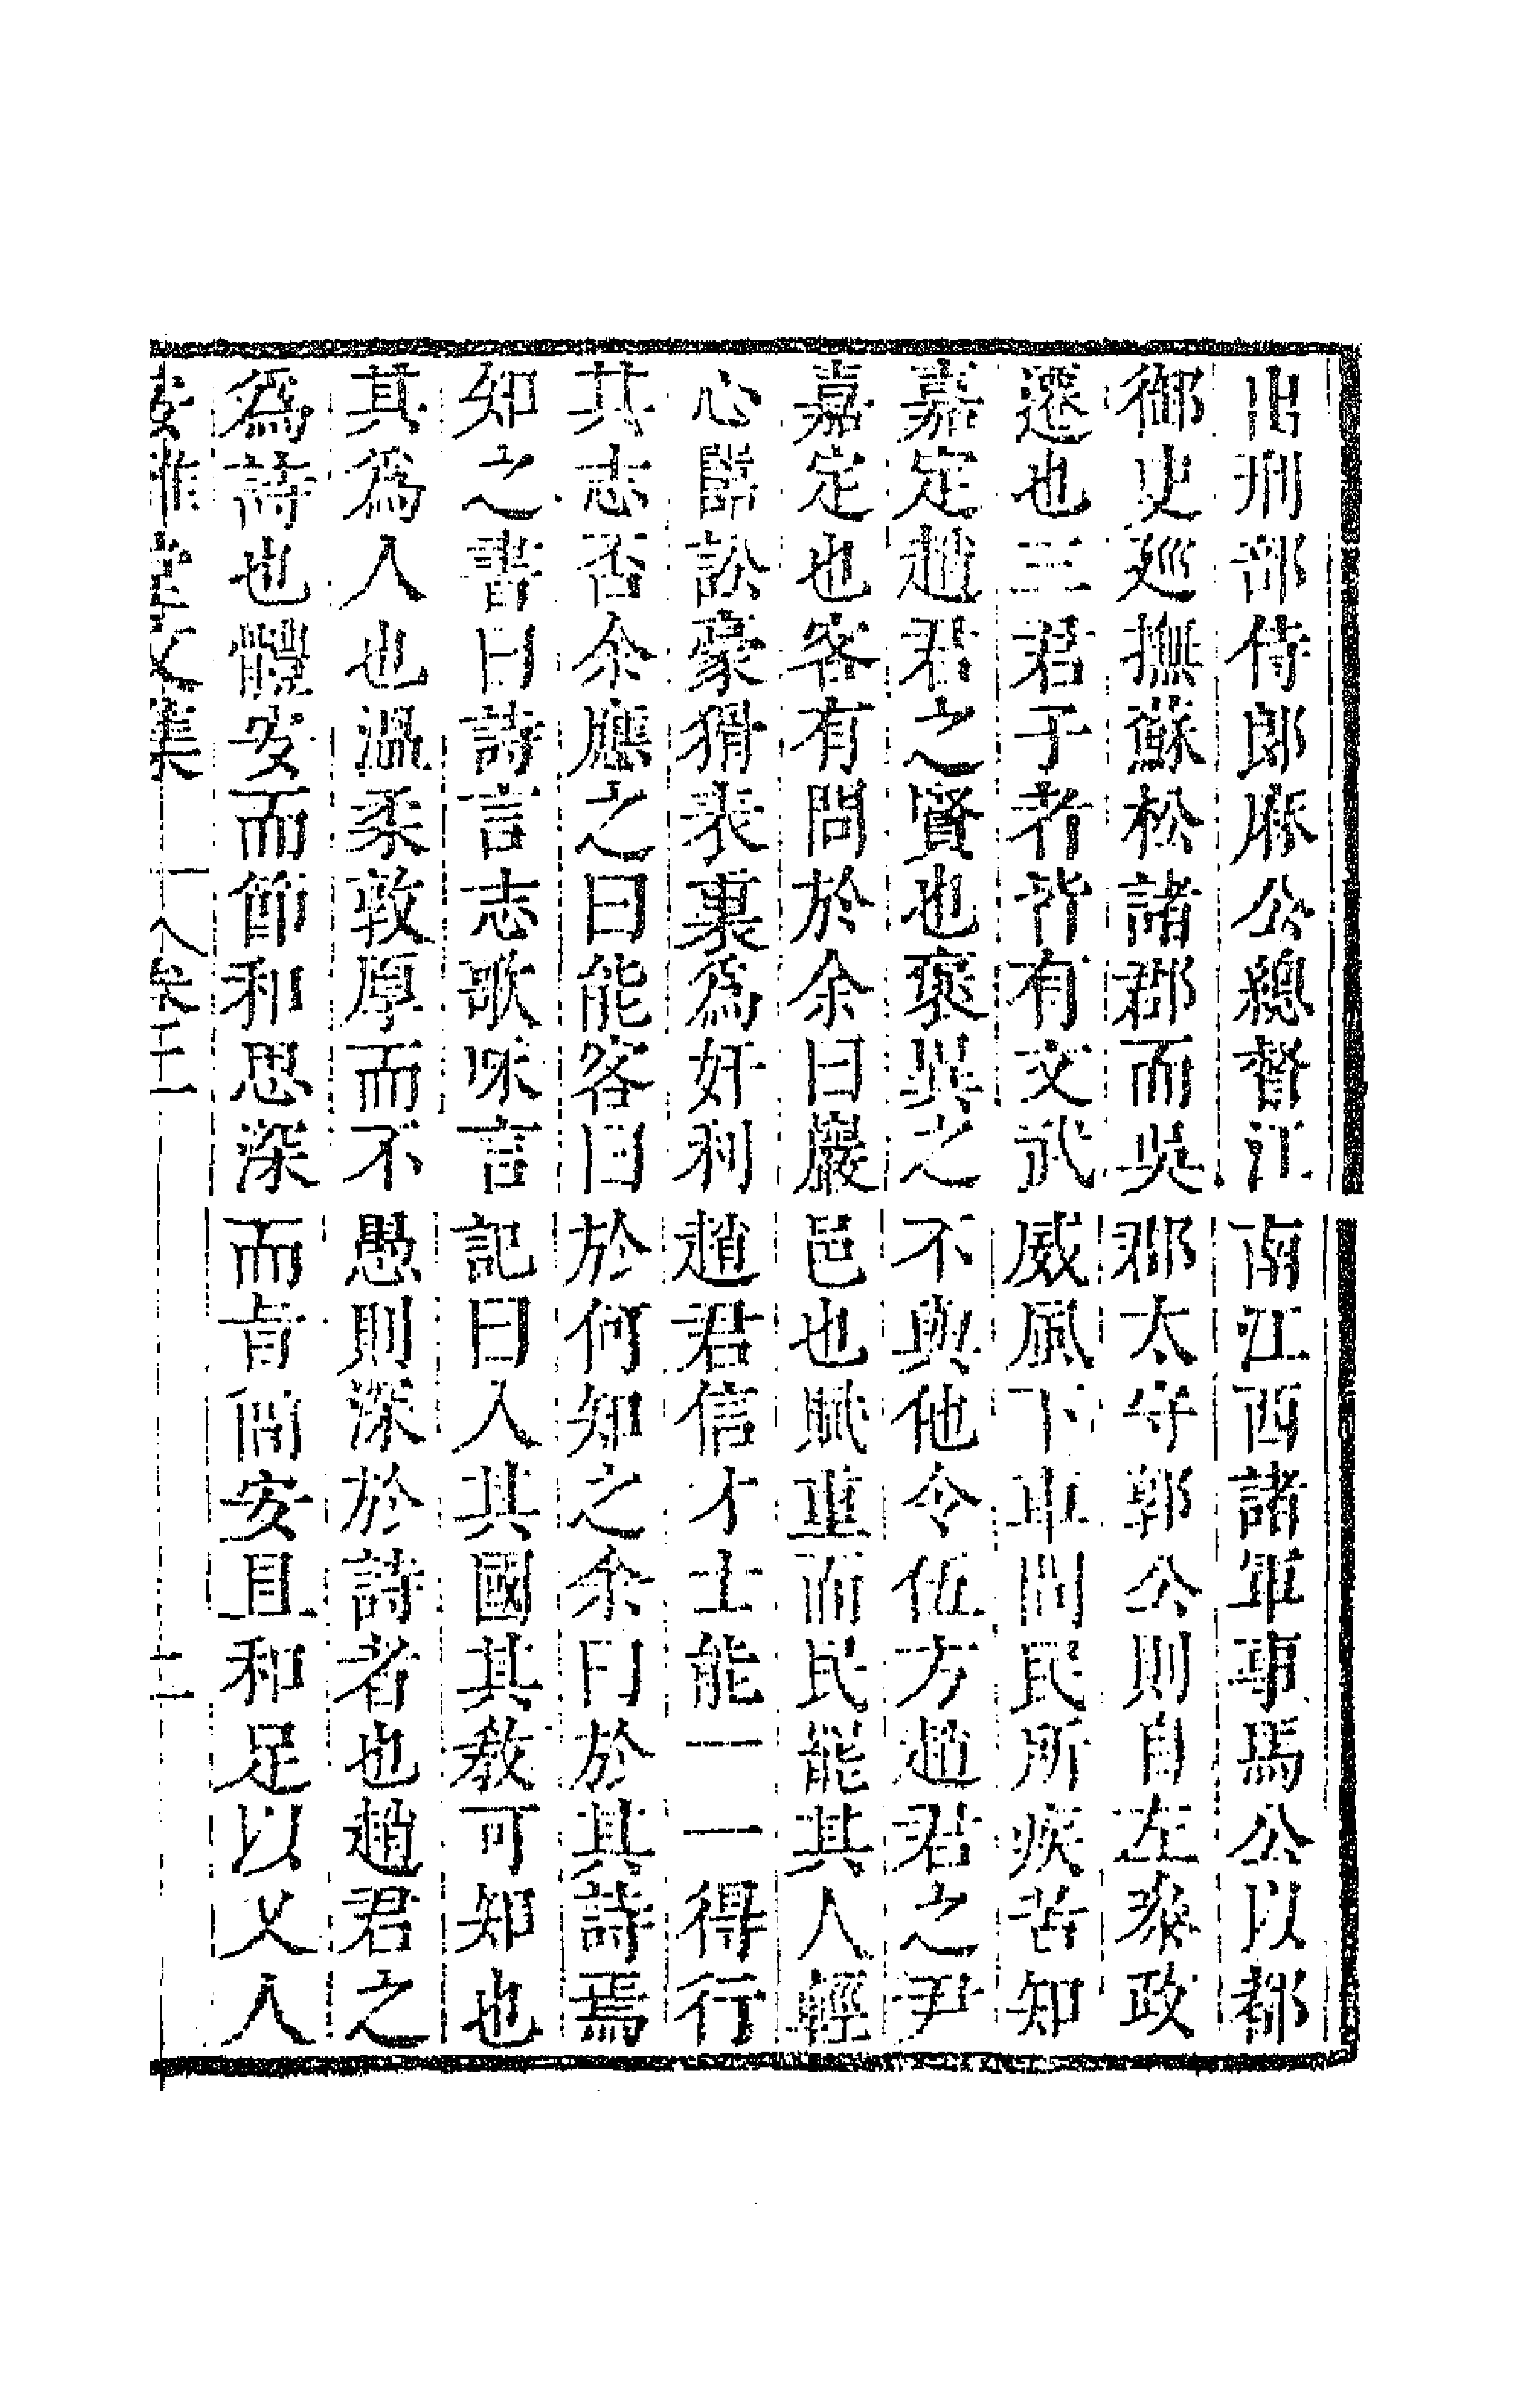 由刑部侍郎麻公總督江南江西諸軍事馬公以都
御史廵撫蘇松諸郡而吳郡太守郭公則自左叅政
遷也三君子者皆有文武威風下車問民所疾苦知
嘉定趙君之賢也褒異之不與他令伍方趙君之尹
嘉定也客有問於余曰巖邑也賦重而民能其人輕
心嚚訟豪猾表裏為奸利趙君信才士能一一得行
其志否余應之曰能客曰於何知之余曰於其詩焉
知之書曰詩言志歌咏言記曰人其國其敎可知也
其為人也溫柔敦厚而不愚則深於詩者也趙君之
為詩也體安而節和思深而旨簡安且和足以乂人
安雅堂文集 卷二 二